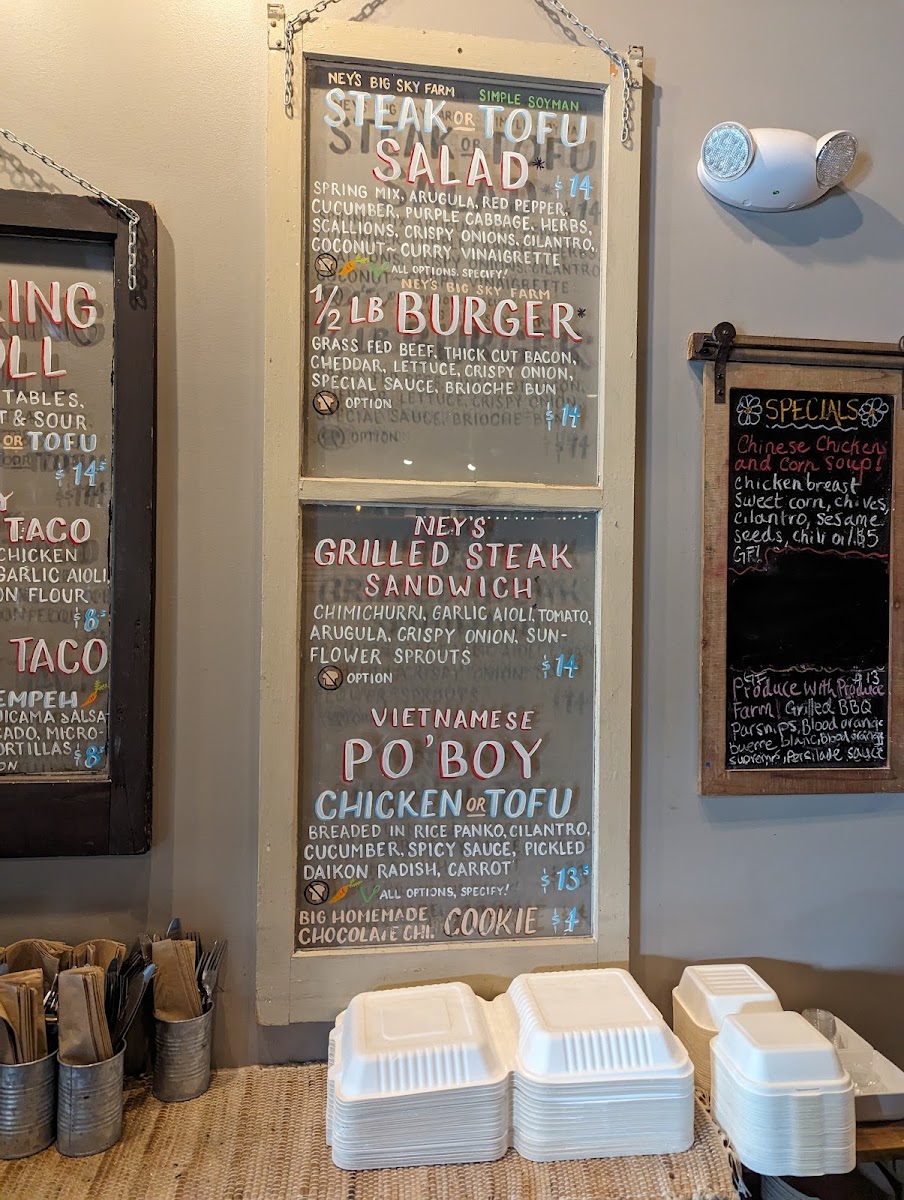 RING
LL
TABLES,
T & SOUR
OR TOFU
$14⁵
Y
TACO
CHICKEN
GARLIC AIOLI
ON FLOUR
$8⁵
TACO
EMPEH
JICAMA SALSA
CADO, MICRO-
ORTILLAS
$8⁵
ON
NEY'S BIG SKY FARM SIMPLE SOYMAN
STEAK OR TOFU
SALAD* $14
SPRING MIX, ARUGULA, RED PEPPER,
CUCUMBER, PURPLE CABBAGE, HERBS,
SCALLIONS, CRISPY ONIONS, CILANTRO,
COCONUT~CURRY VINAIGRETTE
ALL OPTIONS. SPECIFY!
NEY'S BIG SKY FARM
1/2 LB BURGER*
GRASS FED BEEF, THICK CUT BACON,
CHEDDAR, LETTUCE, CRISPY ONION,
SPECIAL SAUCE, BRIOCHE BUN
OPTION $14
NEY'S
GRILLED STEAK
SANDWICH
CHIMICHURRI, GARLIC AIOLI, TOMATO,
ARUGULA, CRISPY ONION, SUN-
FLOWER SPROUTS $14
OPTION
VIETNAMESE
PO'BOY
CHICKEN OR TOFU
BREADED IN RICE PANKO, CILANTRO,
CUCUMBER, SPICY SAUCE, PICKLED
DAIKON RADISH, CARROT $13⁵
V ALL OPTIONS, SPECIFY!
BIG HOMEMADE
CHOCOLATE CHI. COOKIE $4
SPECIALS
Chinese Chicken
and Corn Soup!
Chicken breast
Sweet corn, chives,
cilantro, sesame
seeds, chili oil. $5
GF!
GF $13
Produce with Produce
Farm | Grilled BBQ
Parsnips, Blood orange
buerre blanc, Blood orange
supremes, Persilade sauce